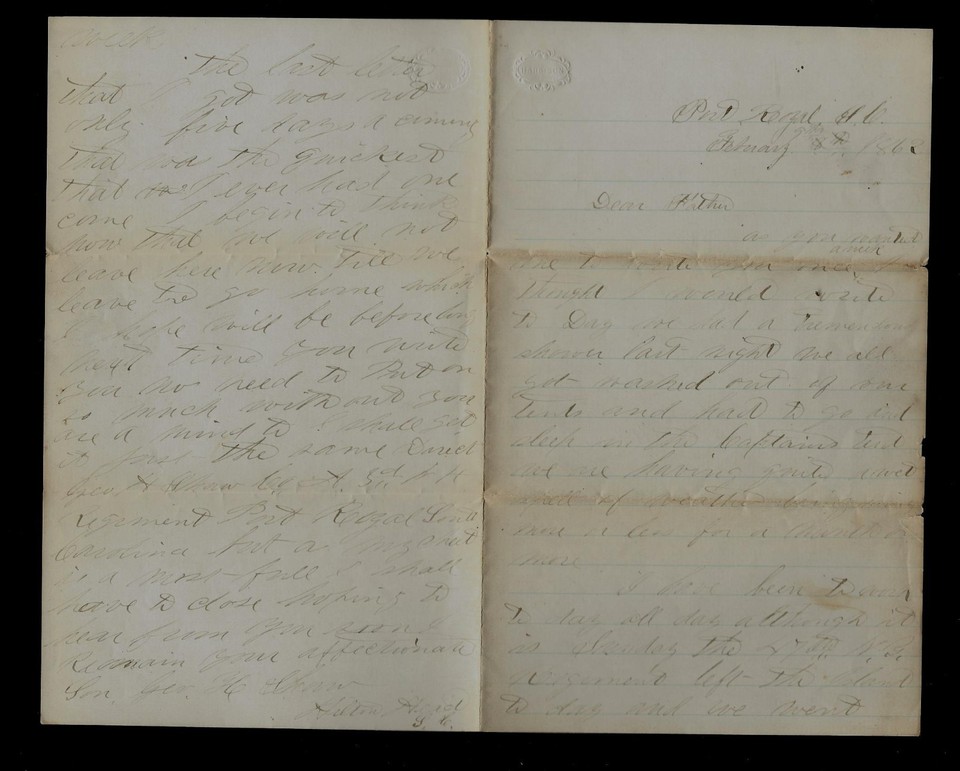 Port Royal, S.C.
February 8th, 1862
Dear Father
as you wanted
me to write you once a week I
thought I would write
to Day we had a tremendous
shower last night we all
got washed out of our
tents and had to go and
sleep in the Captains tent
we are having quite wet
spell of weather
more or less for a month or
more
I have been to work
to day all day although it
is Sunday the N.H.
Regement left the Island
to day and we went
week
The last letter
that I got was not
only five days a coming
that was the quickest
that I ever had one
come I begin to think
now that we will not
leave here now till we
leave to go home which
I hope will be before long
next time you write
you no need to Put on
so much without you
are a mind to I shall get
it just the same Direct
Geo. H Shaw Co. A. 3rd N H
Regement Port Royal South
Carolina but a
is a most full I shall
have to close hoping to
hear from you soon I
Remain your affectionate
Son Geo. H Shaw
Hilton Head
S. C.